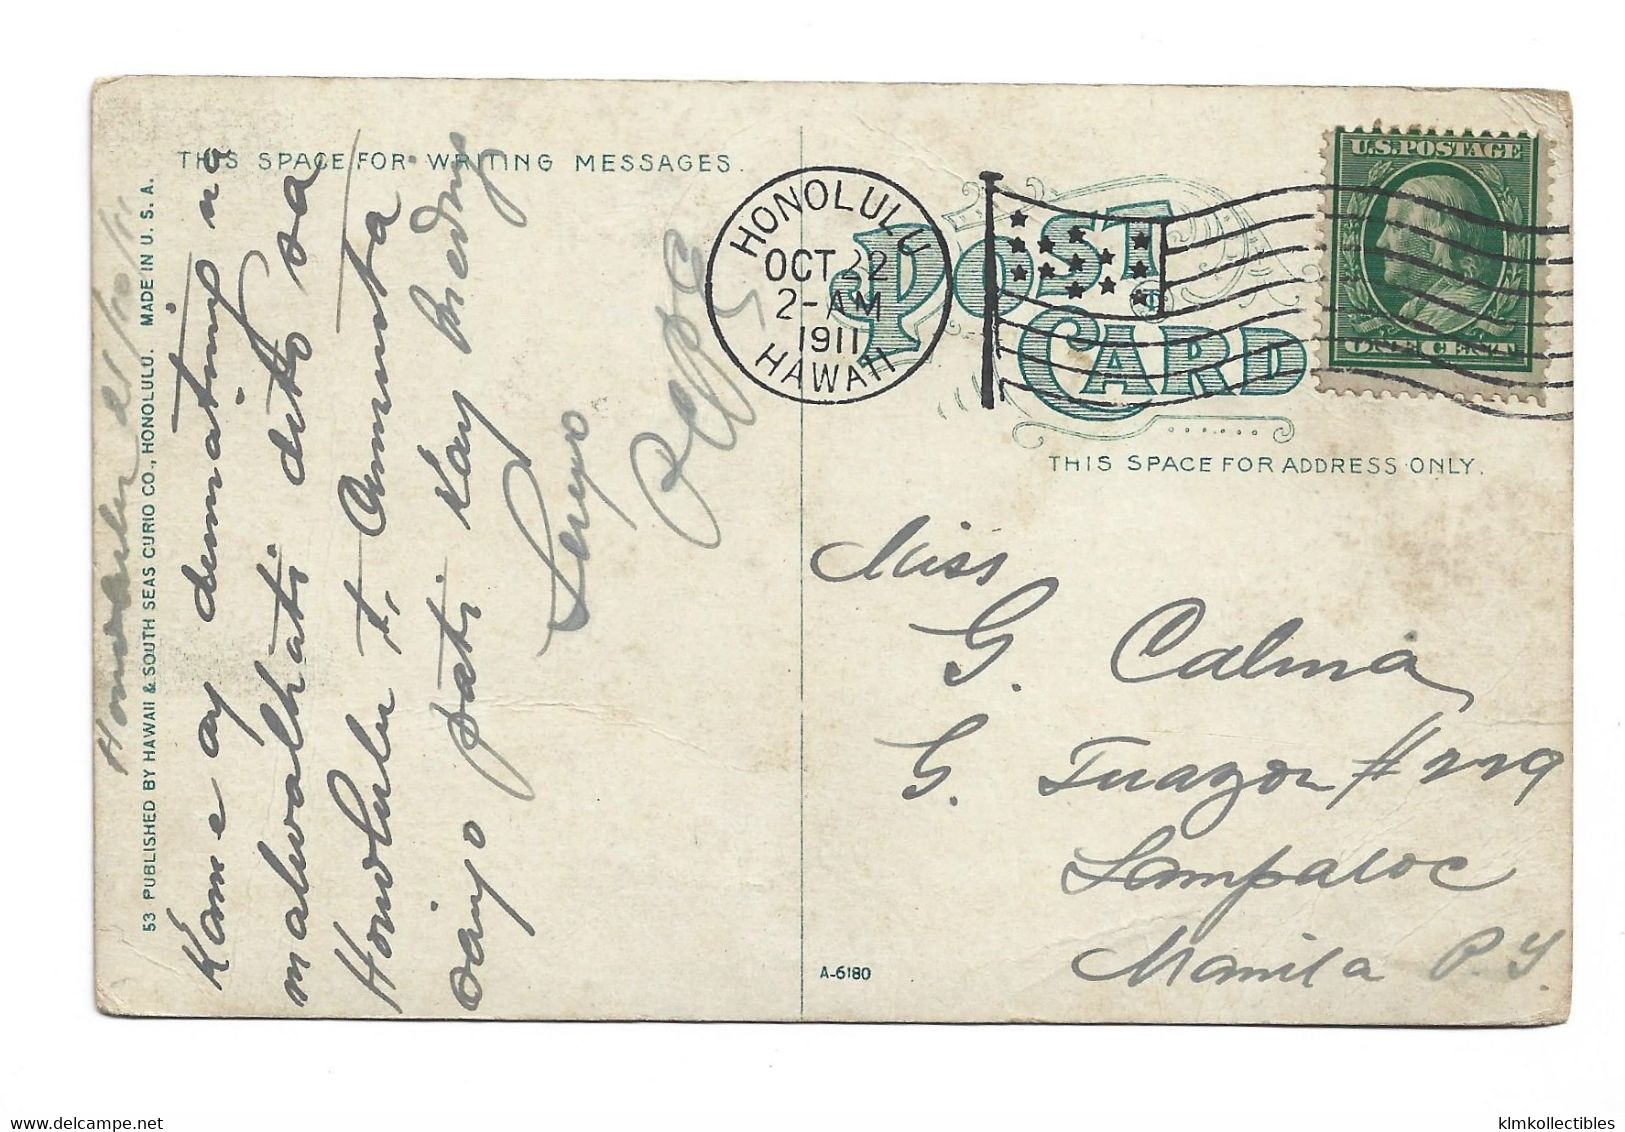 THIS SPACE FOR WRITING MESSAGES.
53 PUBLISHED BY HAWAII & SOUTH SEAS CURIO CO., HONOLULU. MADE IN U. S. A.
Honolulu 21/10/11
Kame ay dumating na
maluwalhati dito sa
Honolulu t, Anumusta
Kay
pati
HONOLULU
OCT 22
2-AM
1911
HAWAII
POST CARD
U.S. POSTAGE
ONE CENT
THIS SPACE FOR ADDRESS ONLY.
Miss
G. Calma
G. Tuazon #229
Sampaloc
Manila P.I.
A-6180
delcampe.net
klmkollectibles